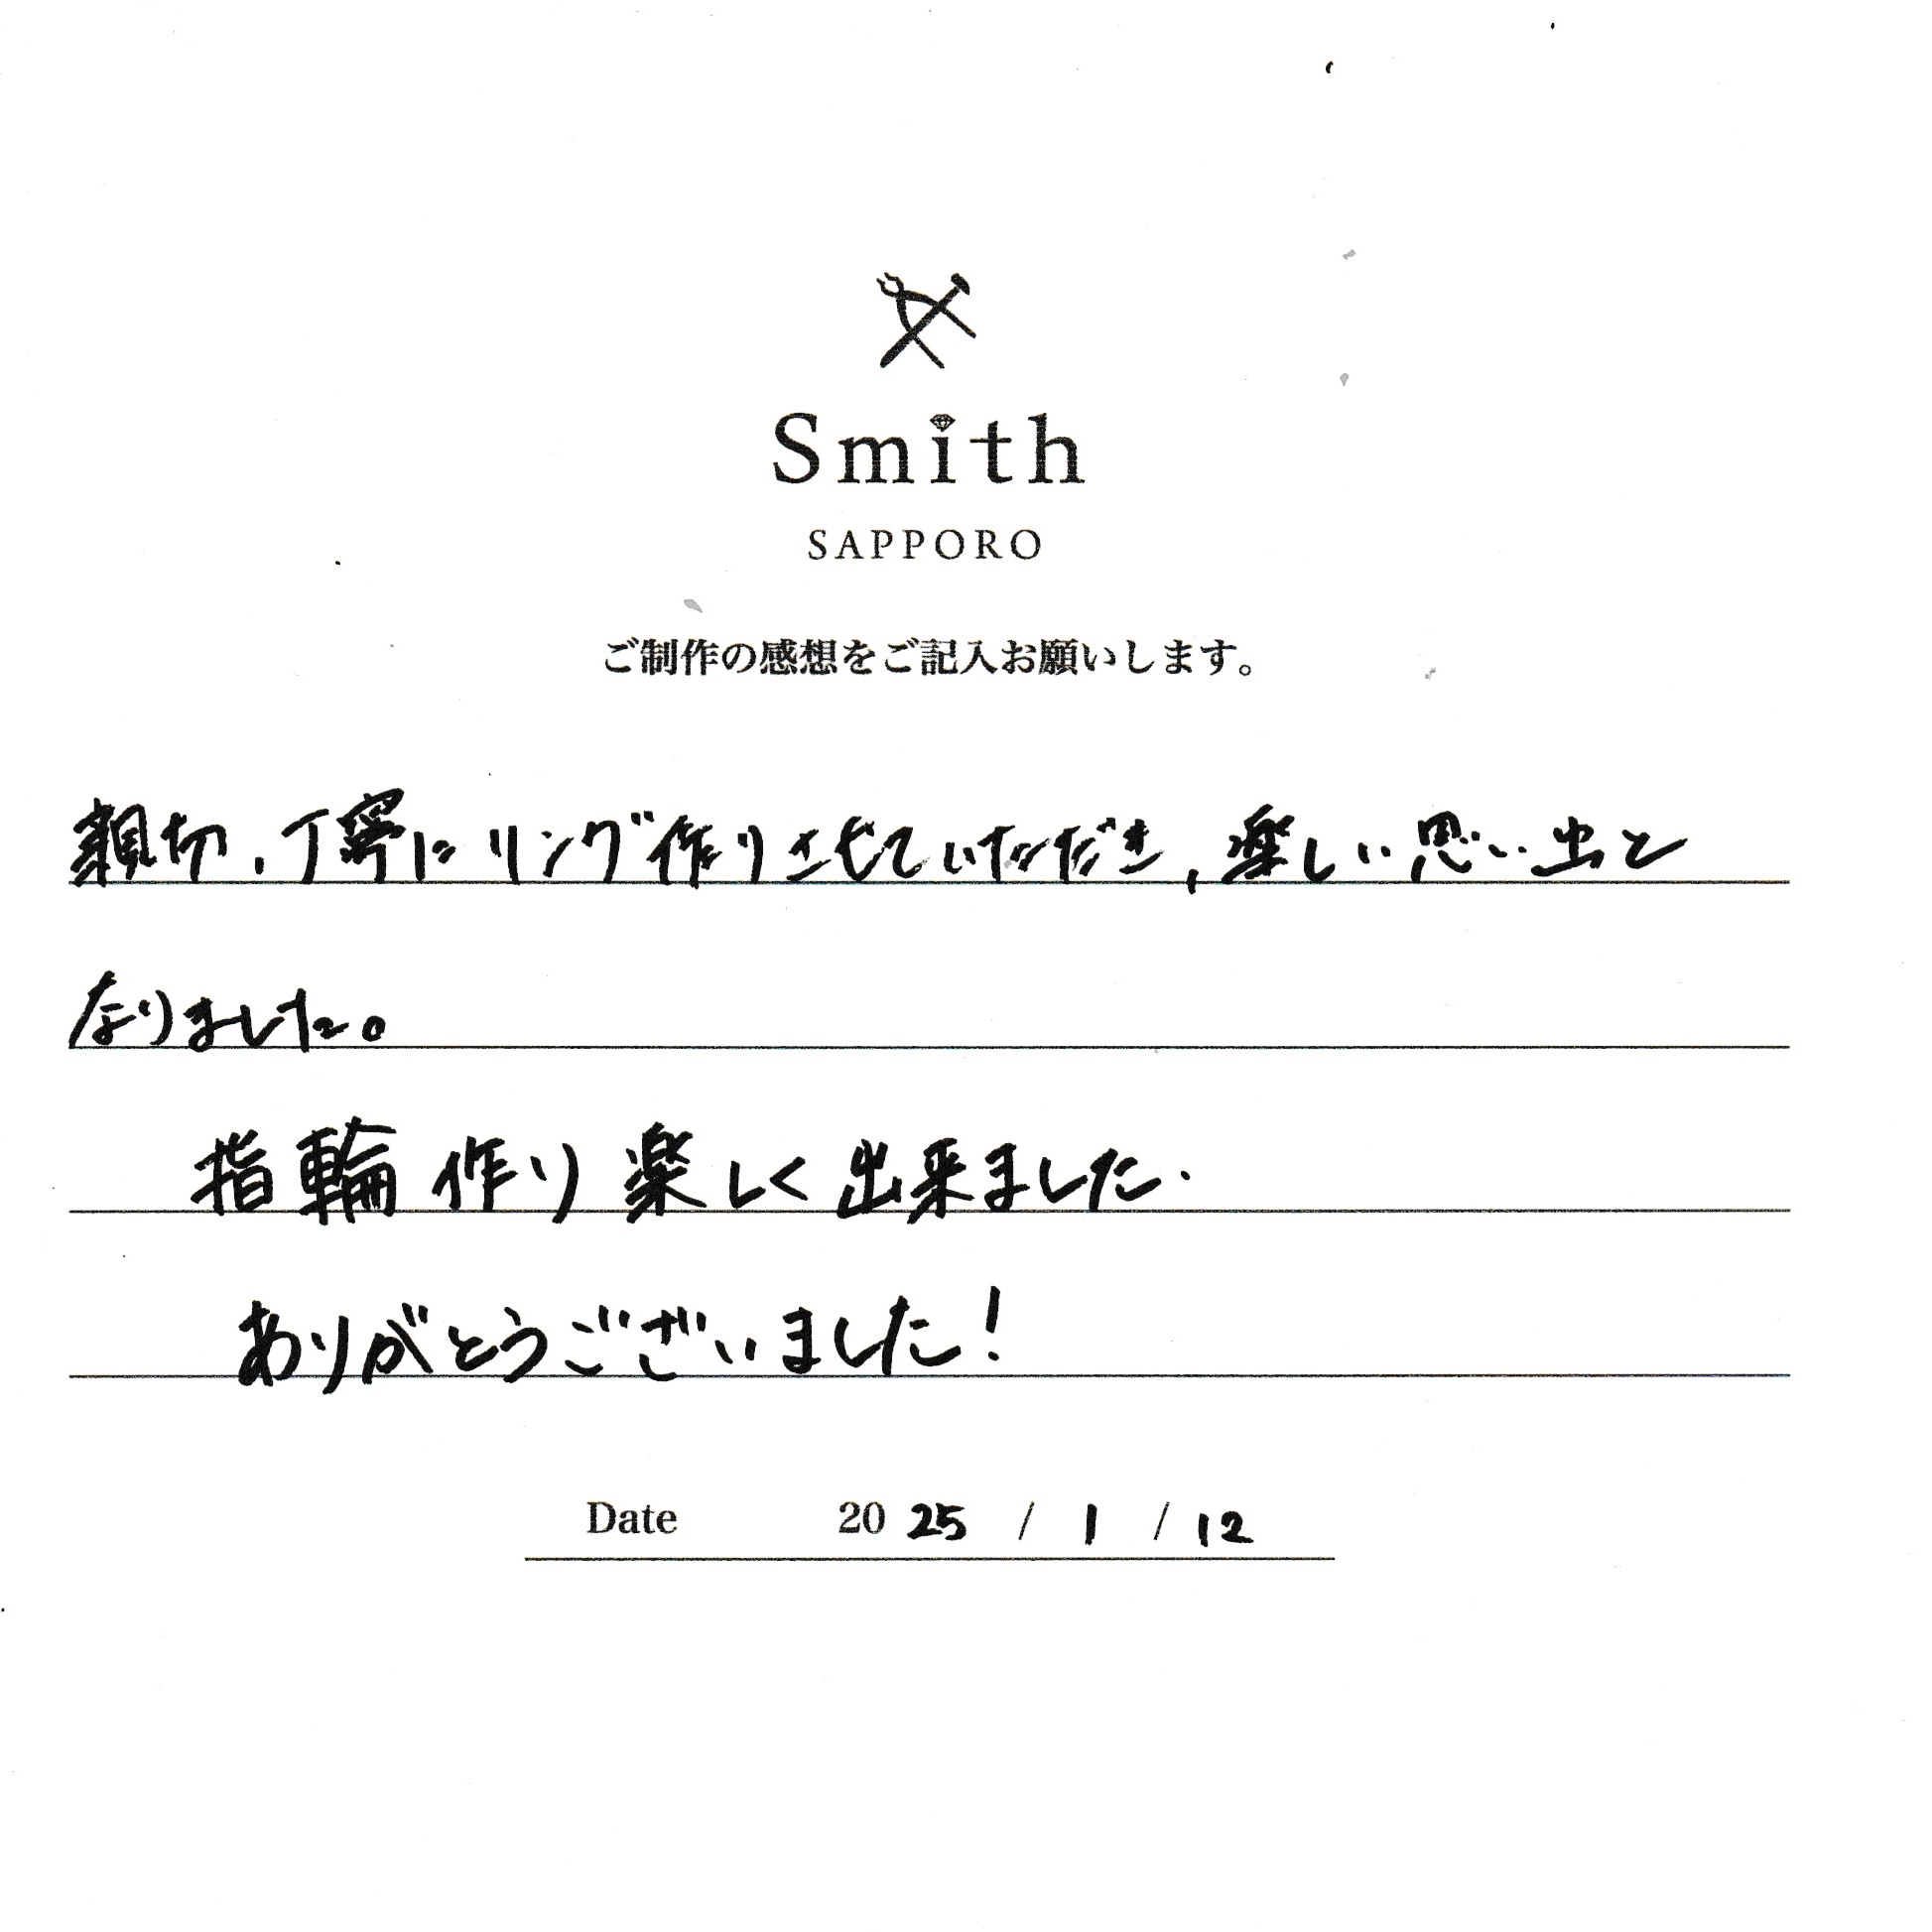 Smith
SAPPORO
ご制作の感想をご記入お願いします。
親切、丁寧にリング作りさせていただき、楽しい思い出と
なりました。
指輪作り楽しく出来ました.
ありがとうございました!
Date 2025 / 1 / 12